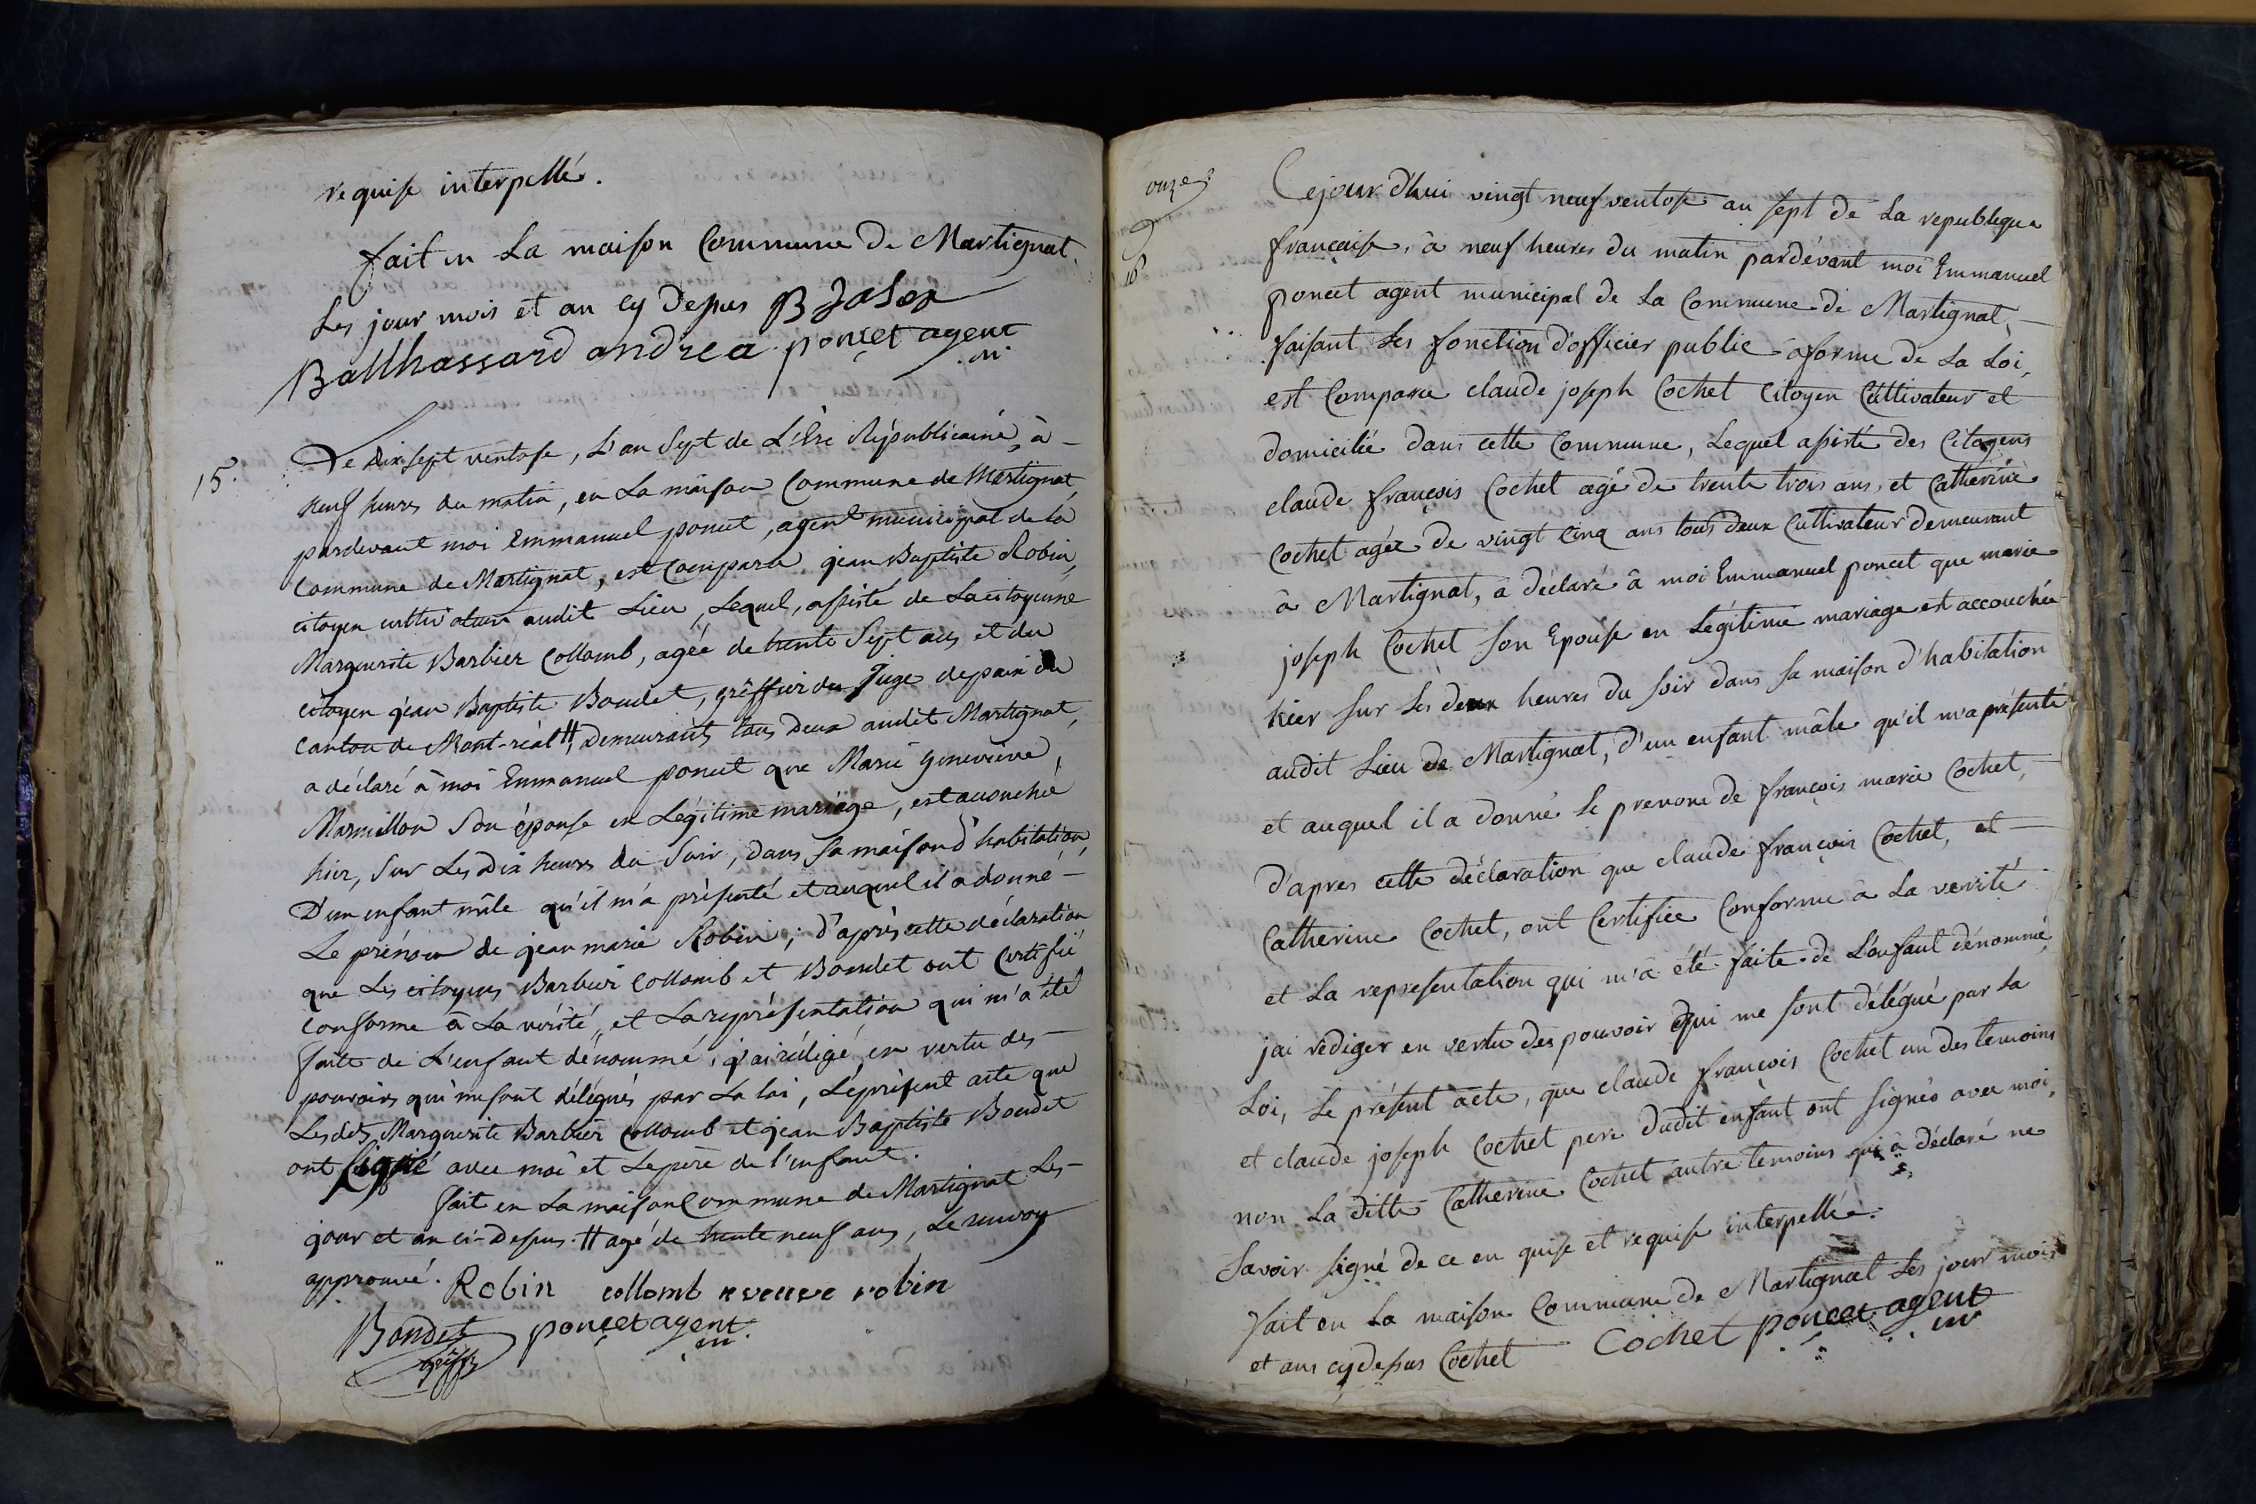 requise interpellé.
fait en La maison Commune De Martignat
Les jour mois et an cy Depus B Jaloz
Ballthassard andrea poncet agent
m.
15.
Le dix sept ventose, L'an Sept de L'Ere Républicaine, à
neuf heures du matin, en La maison Commune de Martignat,
pardevant moi Emmanuel poncet, agent municipal de la
Commune de Martignat, est Comparu jean Baptiste Robin,
citoyen cultivateur audit Lieu, Lequel, assisté de La citoyenne
Marguerite Barbier Collomb, agée de trente Sept ans et du
citoyen jean Baptiste Boudet, greffier du Juge depaix du
Canton de Mont-réal #, Demeurants tous Deux audit Martignat,
a déclaré à moi Emmanuel poncet que Marie Geneviève
Marmillon Son épouse en Légitime mariage, est accouchée
hier, Sur Les Dix heures du Soir, dans Sa maison d'habitation,
D'un enfant mâle qu'il m'a présenté et auquel il a donné
Le prénom de jean marie Robin; d'après cette déclaration
que Les citoyens Barbier Collomb et Boudet ont Certifié
conforme à La vérité, et La représentation qui m'a été
faite de L'enfant dénommé, j'ai rédigé, en vertu des
pouvoirs qui me sont délégués par La loi, Le présent acte que
Lesdts Marguerite Barbier Collomb et jean Baptiste Boudet
ont signé avec moi et Le père de l'enfant.
fait en La maison Commune de Martignat Les
jour et an ci-Dessus. # agé de trente neuf ans, Le renvoy
approuvé. Robin collomb veuve robin
Boudet poncet agent
greff m.
onze
16
Cejourd'hui vingt neuf ventose an sept de La republique
française, à neuf heures du matin pardévant moi Emmanuel
poncet agent municipal de La Commune de Martignat,
faisant Les fonction d'officier public aforme de La Loi,
est Comparu claude joseph Cochet Citoyen Cultivateur et
domicilié dans cette Commune, Lequel assisté des Citoyens
claude françois Cochet agé de trente trois ans, et Catherine
Cochet agée de vingt cinq ans tous deux Cultivateur demeurant
à Martignat, a déclaré à moi Emmanuel poncet que marie
joseph Cochet son Epouse en Légitime mariage est accouchée
hier sur Les deux heures du soir dans sa maison d'habitation
audit Lieu de Martignat, d'un enfant mâle qu'il m'a présenté
et auquel il a donné le prenom de françois marie Cochet,
D'apres cette déclaration que claude françois Cochet, et
Catherine Cochet, ont Certifiée Conforme à La verité
et La representation qui m'a été faite de L'enfant dénommé,
jai rédiger en vertu des pouvoir qui me sont délégué par La
Loi, Le présent acte, que claude françois Cochet un des temoins
et claude joseph Cochet pere dudit enfant ont signés avec moi,
non La ditte Catherine Cochet autre temoins qui a déclaré ne
savoir signé de ce en quise et requise interpellée.
fait en La maison Commune de Martignat Les jour mois
et ans cy depus Cochet Cochet poncet agent
m